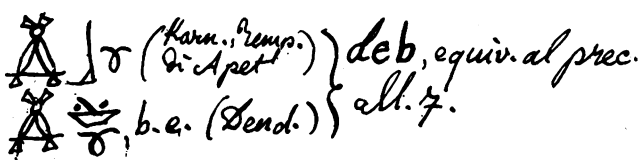 (Karn., Temp. di Apet) deb, equiv. al prec.
, b. e. (Dend.) all. 7.